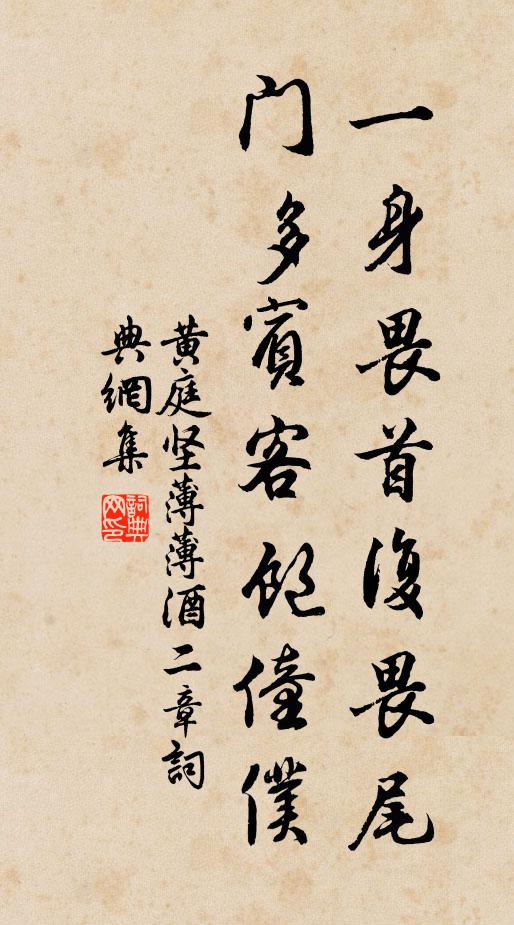 一身畏首復畏尾
門多賓客飽僮僕
黃庭坚薄薄酒二章詞
典網集
詞典网印